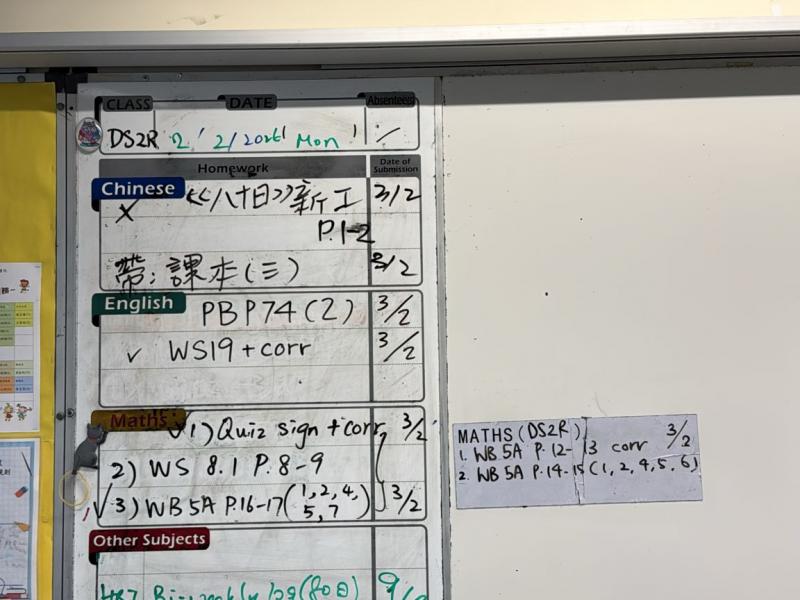 CLASS DATE Absentees
DS2R 2/2/2026 Mon /
Homework Date of Submission
Chinese ×《八十日》新工 3/2
P.1-2
帶:課本(三) 3/2
English PB P74(2) 3/2
✓ WS19 + corr 3/2
Maths ✓ 1) Quiz sign + corr 3/2
2) WS 8.1 P.8-9
✓ 3) WB 5A P.16-17 (1, 2, 4, 5, 7) 3/2
Other Subjects
MATHS (DS2R)
1. WB 5A P.12-13 corr 3/2
2. WB 5A P.14-15 (1, 2, 4, 5, 6)